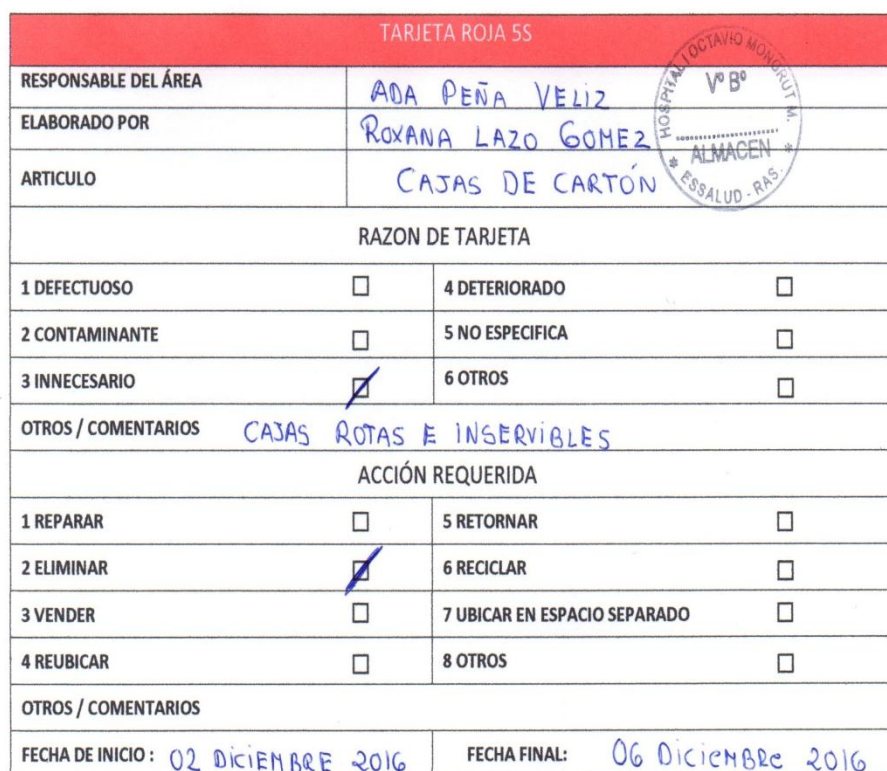 TARJETA ROJA 5S
RESPONSABLE DEL ÁREA ADA PEÑA VELIZ
ELABORADO POR ROXANA LAZO GOMEZ
ARTICULO CAJAS DE CARTÓN
HOSPITAL I OCTAVIO MONGRUT M.
Vº Bº
ALMACEN
* ESSALUD - RAS. *
RAZON DE TARJETA
1 DEFECTUOSO ☐ 4 DETERIORADO ☐
2 CONTAMINANTE ☐ 5 NO ESPECIFICA ☐
3 INNECESARIO ☑ 6 OTROS ☐
OTROS / COMENTARIOS CAJAS ROTAS E INSERVIBLES
ACCIÓN REQUERIDA
1 REPARAR ☐ 5 RETORNAR ☐
2 ELIMINAR ☑ 6 RECICLAR ☐
3 VENDER ☐ 7 UBICAR EN ESPACIO SEPARADO ☐
4 REUBICAR ☐ 8 OTROS ☐
OTROS / COMENTARIOS
FECHA DE INICIO : 02 DICIEMBRE 2016 FECHA FINAL: 06 DICIEMBRE 2016